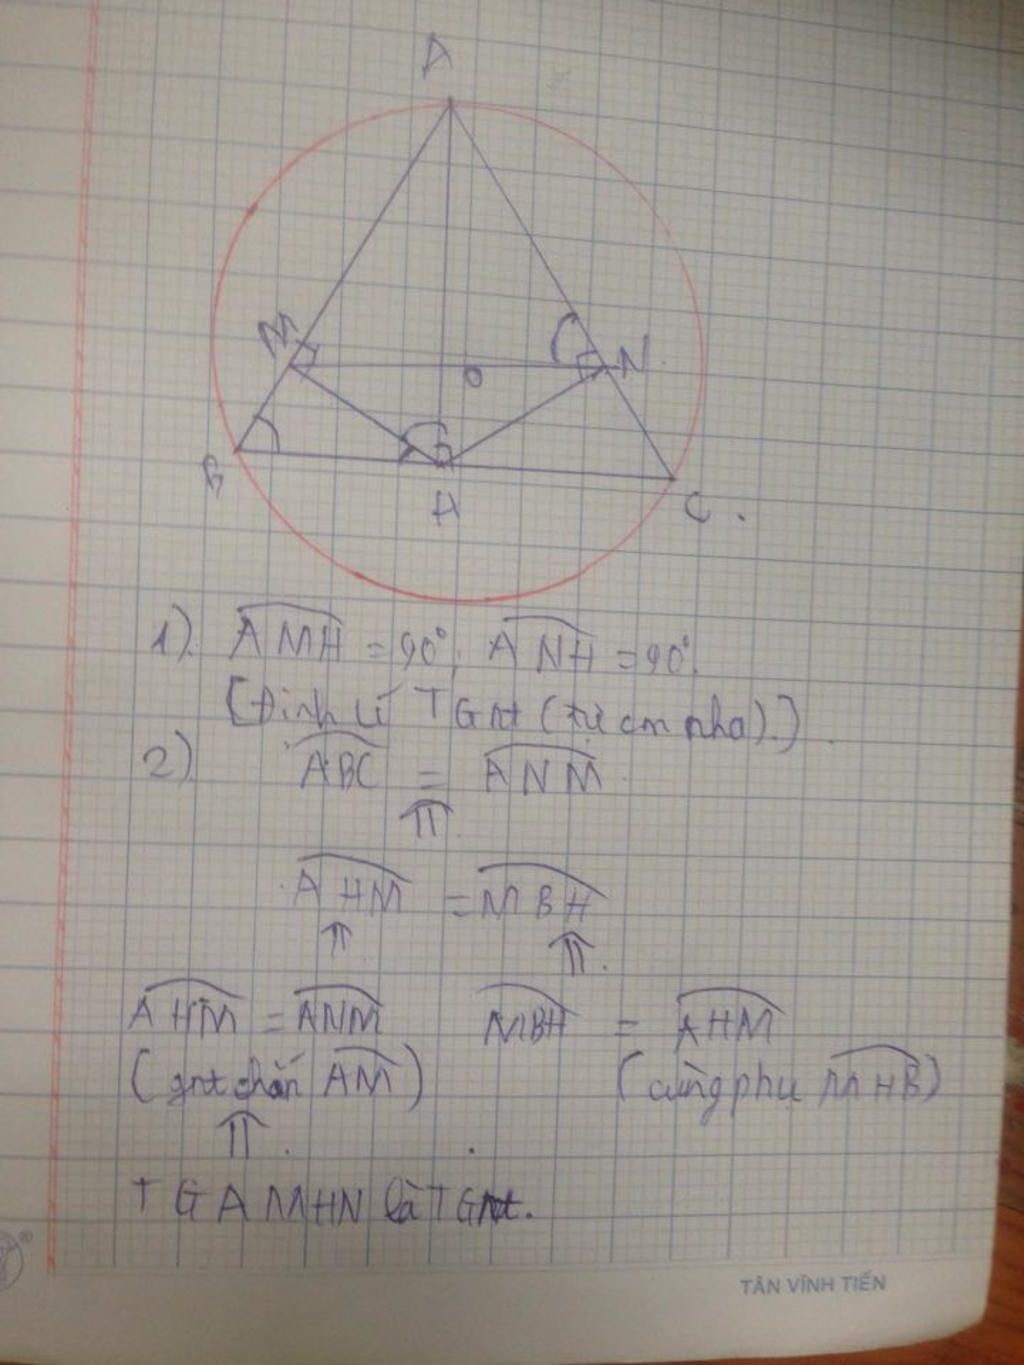 A
M
N.
O
B
H
C.
1). AMH = 90°; ANH = 90°.
(Định lí TGnt (tự cm nha).)
2) ABC = ANM
⇑
AHM = MBH
⇑ ⇑
AHM = ANM MBH = AHM
(gnt chắn AM) (cùng phụ MHB)
⇑
TG AMHN là TGNt.
TÂN VĨNH TIẾN